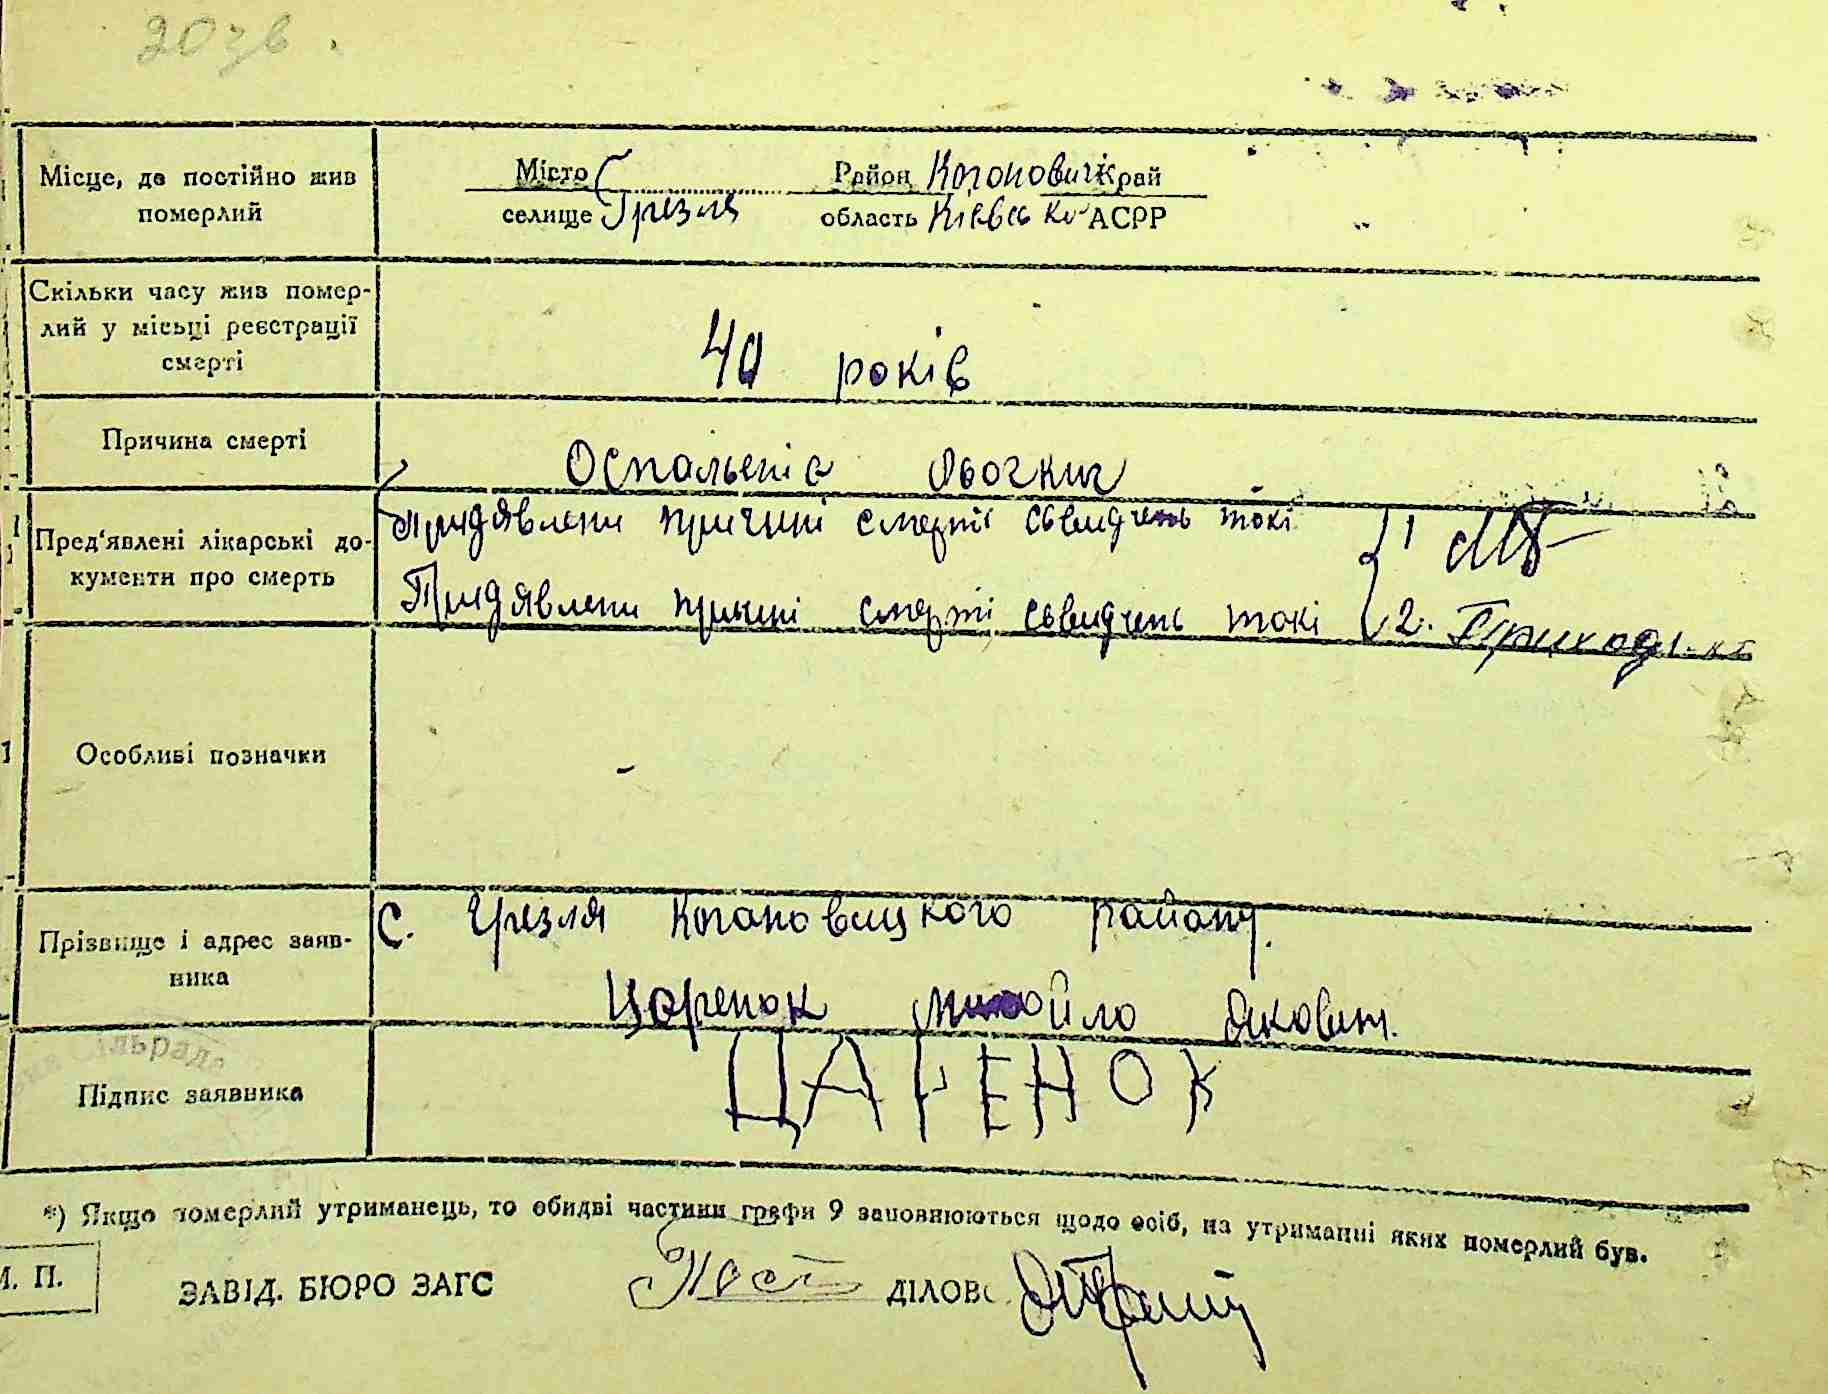 20 зв.
Місце, де постійно жив померлий
Місто с. Район Коганович Край
селище Грезля область Київськ АСРР
Скільки часу жив помер-
лий у місьці реєстрації
смерті
40 років
Причина смерті
Оспальеніє
Пред'явлені лікарські до-
кументи про смерть
Придявлени причині смерті сьвидчень токі 1
Придявлени причині смерті сьвидчень токі 2. Приходь
Особливі позначки
-
Прізвище і адрес заяв-
ника
С. Грезля Когановицкого району.
Царенок Михойло Якович.
Підпис заявника
ЦАРЕНОК
сільрада
*) Якщо померлий утриманець, то обидві частини графи 9 заповнюються щодо осіб, на утриманні яких померлий був.
М. П.
ЗАВІД. БЮРО ЗАГС ДІЛОВ